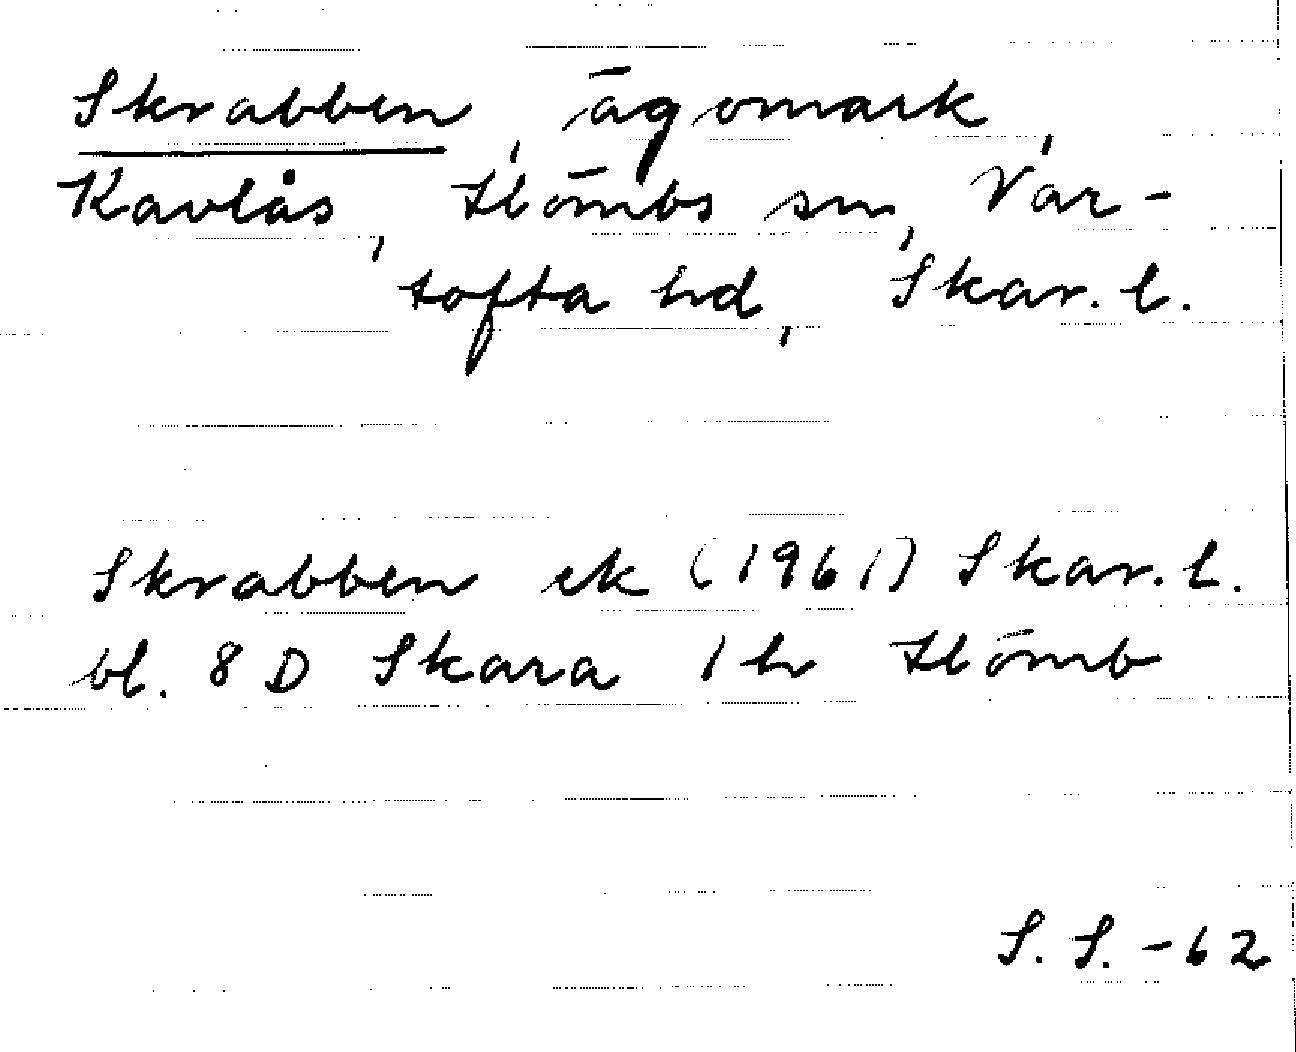 Skrabben, ägomark,
Kavlås, Hömbs sn, Var-
tofta hd, Skar. l.
Skrabben ek (1961) Skar. l.
bl. 8 D Skara 1 h Hömb
S. S. -62